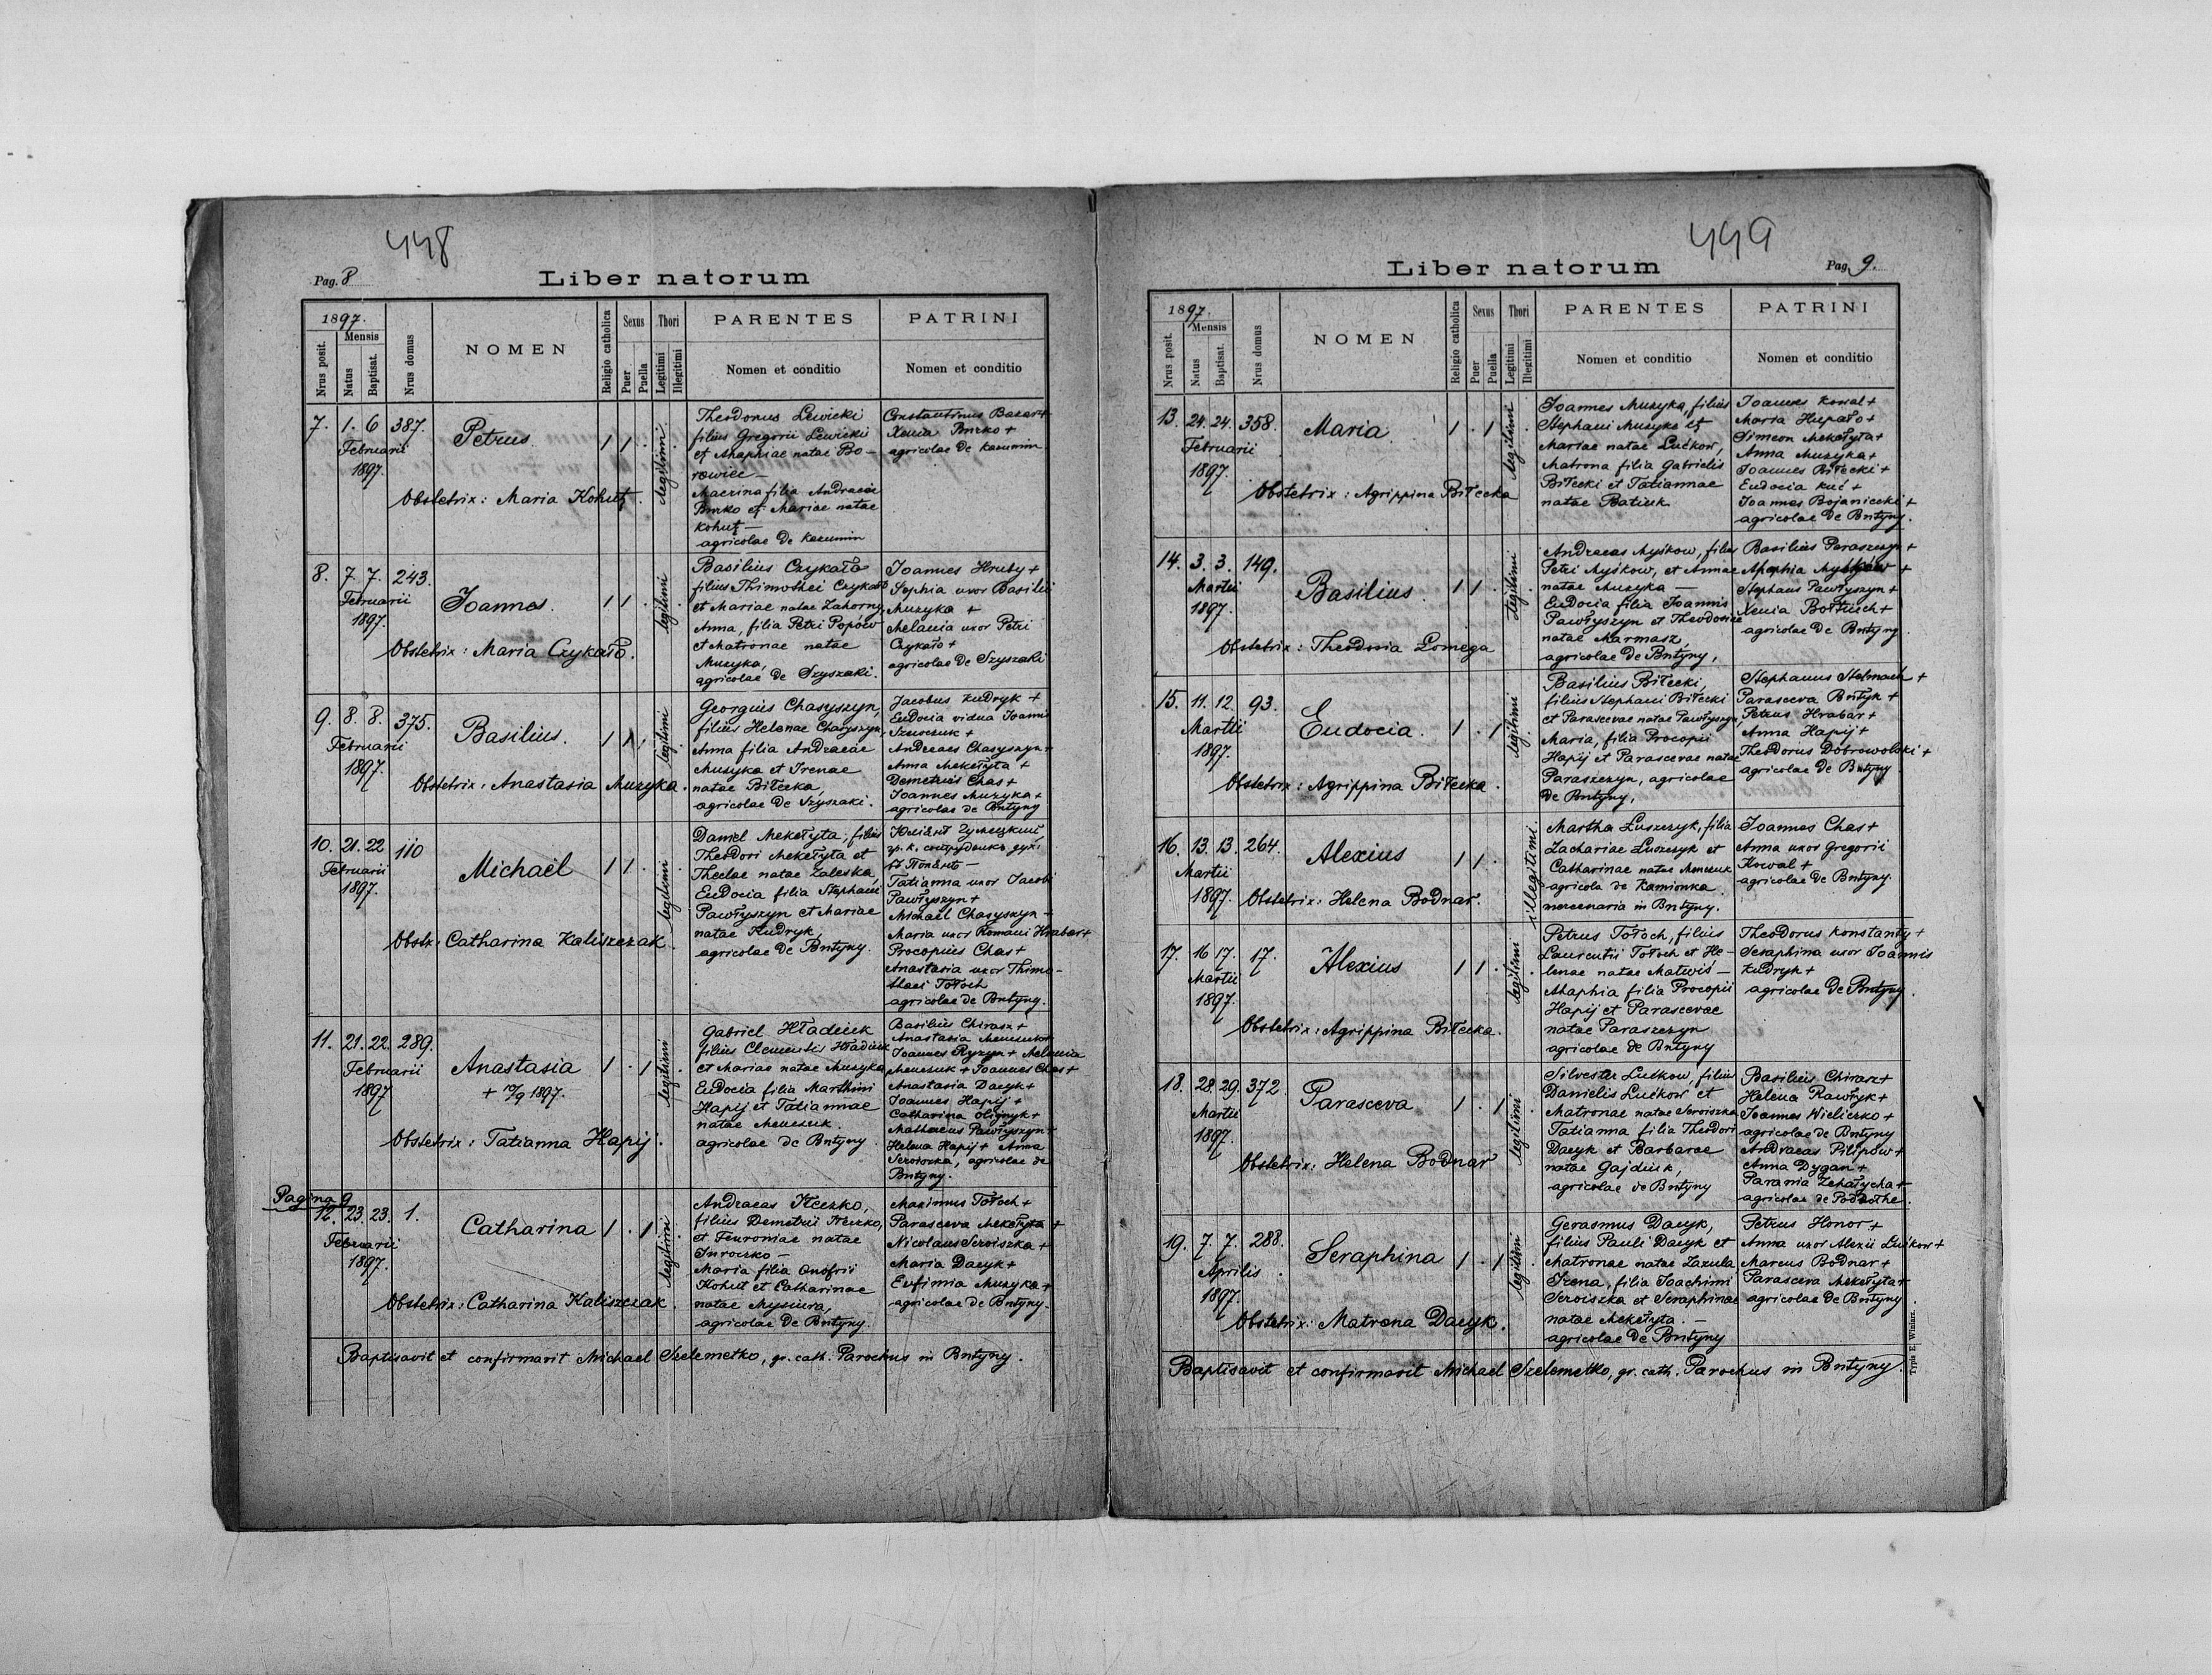 448
Pag. 8
Liber natorum
1897.
Mensis
Nrus posit.
Natus
Baptisat.
Nrus domus
NOMEN
Religio catholica
Sexus
Puer
Puella
Thori
Legitimi
Illegitimi
PARENTES
Nomen et conditio
PATRINI
Nomen et conditio
7. 1. 6 387.
Februarii
1897.
Petrus
1 1 . legitimi .
Obstetrix: Maria Kohut.
Theodorus Lewicki
filius Gregorii Lewicki
et Ahaphiae natae Bo-
rowiec -
Macrina filia Andreae
et Mariae natae
Kohut -
agricolae de
Constantinus Bazar+
Xenia +
agricolae de
8. 7. 7. 243.
Februarii
1897.
Joannes.
1 1 . legitimi .
Obstetrix: Maria Czykało.
Basilius Czykało
filius Thimothei Czykało
et Mariae natae Zahorny
Anna, filia Petri Popów
et Matronae natae
Muzyka,
agricolae de Szyszaki.
Joannes Hruby +
Sophia uxor Basilii
Muzyka +
Melania uxor Petri
Czykało +
agricolae de Szyszaki
9. 8. 8. 375.
Februarii
1897.
Basilius.
1 1 . legitimi .
Obstetrix: Anastasia Muzyka.
Georgius Chasyszyn,
filius Helenae Chasyszyn,
Anna filia Andreae
Muzyka et Irenae
natae Biłecka,
agricolae de Szyszaki.
Jacobus Kudryk +
Eudocia vidua Joannis
Szewczuk +
Andreas Chasyszyn +
Anna Mekełyta +
Demetrius Chas +
Joannes Muzyka +
agricolae de Bntyny
10. 21. 22 110
Februarii
1897.
Michaël
1 1 . legitimi .
Obstx: Catharina Kaliszczak.
Daniel Mekełyta, filius
Theodori Mekełyta et
Theclae natae Zaleska,
Eudocia filia Stephani
Pawłyszyn et Mariae
natae Kudryk,
agricolae de Bntyny.
Tatianna uxor Jacobi
Pawłyszyn +
Michael Chasyszyn -
Maria uxor Romani Hrabar+
Procopius Chas +
Anastasia uxor Thimo-
thaei Tołoch
agricolae de Bntyny.
11. 21. 22. 289.
Februarii
1897
Anastasia
+ 10/9 1897.
1 . 1 legitimi .
Obstetrix: Tatianna Hapij.
Gabriel Hładiuk
filius Clementis Hładiuk
et Mariae natae Muzyka
Eudocia filia Marthini
Hapij et Tatiannae
natae Menczuk.
agricolae de Bntyny.
Basilius Chirasz +
Anastasia Menczuk+
Joannes Ryzyn + Melania
Menczuk + Joannes Chas +
Anastasia Dacyk +
Joannes Hapij +
Catharina Olijnyk +
Mathaeus Pawłyszyn +
Helena Hapij + Anna
Serwiszka, agricolae de
Bntyny.
Pagina 9
12. 23. 23. 1.
Februarii
1897.
Catharina
1 . 1 legitimi .
Obstetrix: Catharina Kaliszczak.
Andraeas
filius Demetrii
et Feuroniae natae
Maria filia Onofrii
Kohut et Catharinae
natae
agricolae de Bntyny.
Maximus Tołoch +
Parasceva Mekełyta +
Nicolaus Serwiszka +
Maria Dacyk +
Eufimia Muzyka +
agricolae de Bntyny.
Baptisavit et confirmavit Michael Szelemetko, gr. cath. Parochus in Bntyny.
449
Liber natorum
Pag. 9.
1897.
Mensis
Nrus posit.
Natus
Baptisat.
Nrus domus
NOMEN
Religio catholica
Sexus
Puer
Puella
Thori
Legitimi
Illegitimi
PARENTES
Nomen et conditio
PATRINI
Nomen et conditio
13. 24. 24. 358.
Februarii
1897.
Maria
1 . 1 legitimi .
Obstetrix: Agrippina Biłecka
Joannes Muzyka, filius
Stephani Muzyka et
Mariae natae Lućkow,
Matrona filia Gabrielis
Biłecki et Tatiannae
natae Batiuk
Joannes Kowal +
Maria Hupało +
Simeon Mekełyta +
Anna Muzyka +
Joannes Biłecki +
Eudocia Kuć +
Joannes Bojaniecki +
agricolae de Bntyny.
14. 3. 3. 149.
Martii
1897.
Basilius.
1 1 . legitimi .
Obstetrix: Theodosia Lomega
Andraeas Myśkow, filius
Petri Myśkow, et Annae
natae Muzyka -
Eudocia filia Joannis
Pawłyszyn et Theodosiae
natae Marmasz,
agricolae de Bntyny,
Basilius Paraszczyn +
Ahaphia Myśków +
Stephanus Pawłyszyn +
Xenia Bołtuich +
agricolae de Bntyny.
15. 11. 12. 93.
Martii
1897.
Eudocia.
1 . 1 legitimi .
Obstetrix: Agrippina Biłecka.
Basilius Biłecki,
filius Stephani Biłecki
et Parascevae natae Pawłyszyn,
Maria, filia Procopii
Hapij et Parascevae natae
Paraszczyn, agricolae
de Bntyny,
Stephanus Stelmach +
Parasceva Bntyk +
Petrus Hrabar +
Anna Hapij +
Theodorus Dobrowolski +
agricolae de Bntyny
16. 13. 13. 264.
Martii
1897.
Alexius
1 1 . illegitimi.
Obstetrix: Helena Bodnar.
Martha Łuszczyk, filia
Zachariae Łuszczyk et
Catharinae natae Menczuk
agricola de Kamionka
mercenaria in Bntyny.
Joannes Chas +
Anna uxor Gregorii
Kowal +
agricolae de Bntyny.
17. 16 17. 17.
Martii
1897.
Alexius
1 1 . legitimi .
Obstetrix: Agrippina Biłecka.
Petrus Tołoch, filius
Laurentii Tołoch et He-
lenae natae Matwiś -
Ahaphia filia Procopii
Hapij et Parascevae
natae Paraszczyn
agricolae de Bntyny
Theodorus Konstanty +
Seraphina uxor Joannis
Kudryk +
agricolae de Bntyny.
18. 28. 29. 372.
Martii
1897.
Parasceva
1 . 1 legitimi .
Obstetrix: Helena Bodnar
Silvester Lućkow, filius
Danielis Lućkow et
Matronae natae Serwiszka
Tatianna filia Theodori
Dacyk et Barbarae
natae Gajdiuk,
agricolae de Bntyny
Basilius Chirasz +
Helena Rawłyk +
Joannes Wieliczko +
agricolae de Bntyny
Andraeas Pilipów +
Anna Dygan +
Parania Zehałycha +
agricolae de
19. 7. 7. 288.
Aprilis
1897.
Seraphina
1 . 1 legitimi .
Obstetrix: Matrona Dacyk.
Gerasmus Dacyk,
filius Pauli Dacyk et
Matronae natae Zazula
Irena, filia Joachimi
Serwiszka et Seraphinae
natae Mekełyta. -
agricolae de Bntyny
Petrus Honor +
Anna uxor Alexii Lućkow +
Marcus Bodnar +
Parasceva Mekełyta +
agricolae de Bntyny
Baptisavit et confirmavit Michael Szelemetko, gr. cath. Parochus in Bntyny.
Typis E. Winiarz.